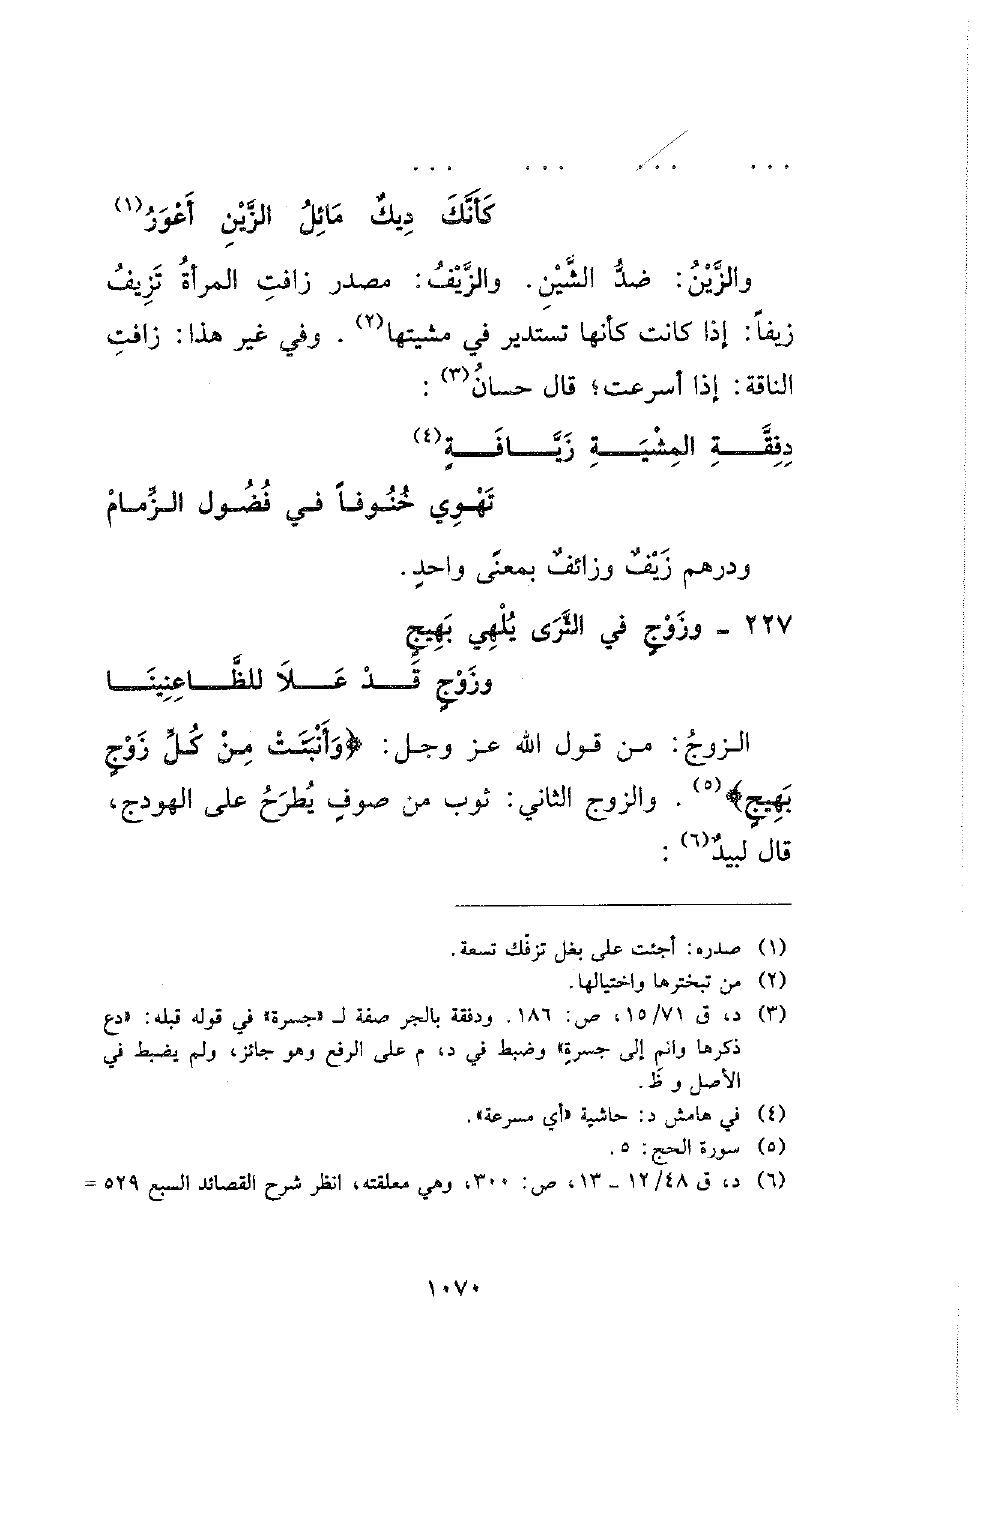 ... ... ... ...
كَأَنَّكَ دِيكٌ مَائِلُ الزَّيْنِ أَعْوَرُ(١)
والزَّيْنُ: ضدُّ الشَّيْنِ. والزَّيْفُ: مصدر زافتِ المرأةُ تَزِيفُ
زيفاً: إذا كانت كأنها تستدير في مشيتها(٢). وفي غير هذا: زافتِ
الناقة: إذا أسرعت؛ قال حسانُ(٣):
دِفِقَّةِ المِشْيَةِ زَيَّافَةٍ(٤)
تَهْوِي خُنُوفاً في فُضُول الزِّمامْ
ودرهم زَيْفٌ وزائفٌ بمعنًى واحدٍ.
٢٢٧ - وزَوْجٍ في الثَّرَى يُلْهِي بَهِيجٍ
وزَوْجٍ قَدْ عَلاَ للظَّاعِنِينَا
الزوجُ: من قول الله عز وجل: ﴿وَأَنْبَتَتْ مِنْ كُلِّ زَوْجٍ
بَهِيجٍ﴾(٥). والزوج الثاني: ثوب من صوفٍ يُطرَحُ على الهودج،
قال لبيدٌ(٦):
(١) صدره: أجئت على بغل تزفّك تسعة.
(٢) من تبخترها واختيالها.
(٣) د، ق ١٥/٧١، ص: ١٨٦. ودفقة بالجر صفة لـ «جسرة» في قوله قبله: «دع
ذكرها وانم إلى جسرةٍ» وضبط في د، م على الرفع وهو جائز، ولم يضبط في
الأصل و ظ.
(٤) في هامش د: حاشية «أي مسرعة».
(٥) سورة الحج: ٥.
(٦) د، ق ١٢/٤٨ - ١٣، ص: ٣٠٠، وهي معلقته، انظر شرح القصائد السبع ٥٢٩ =
١٠٧٠